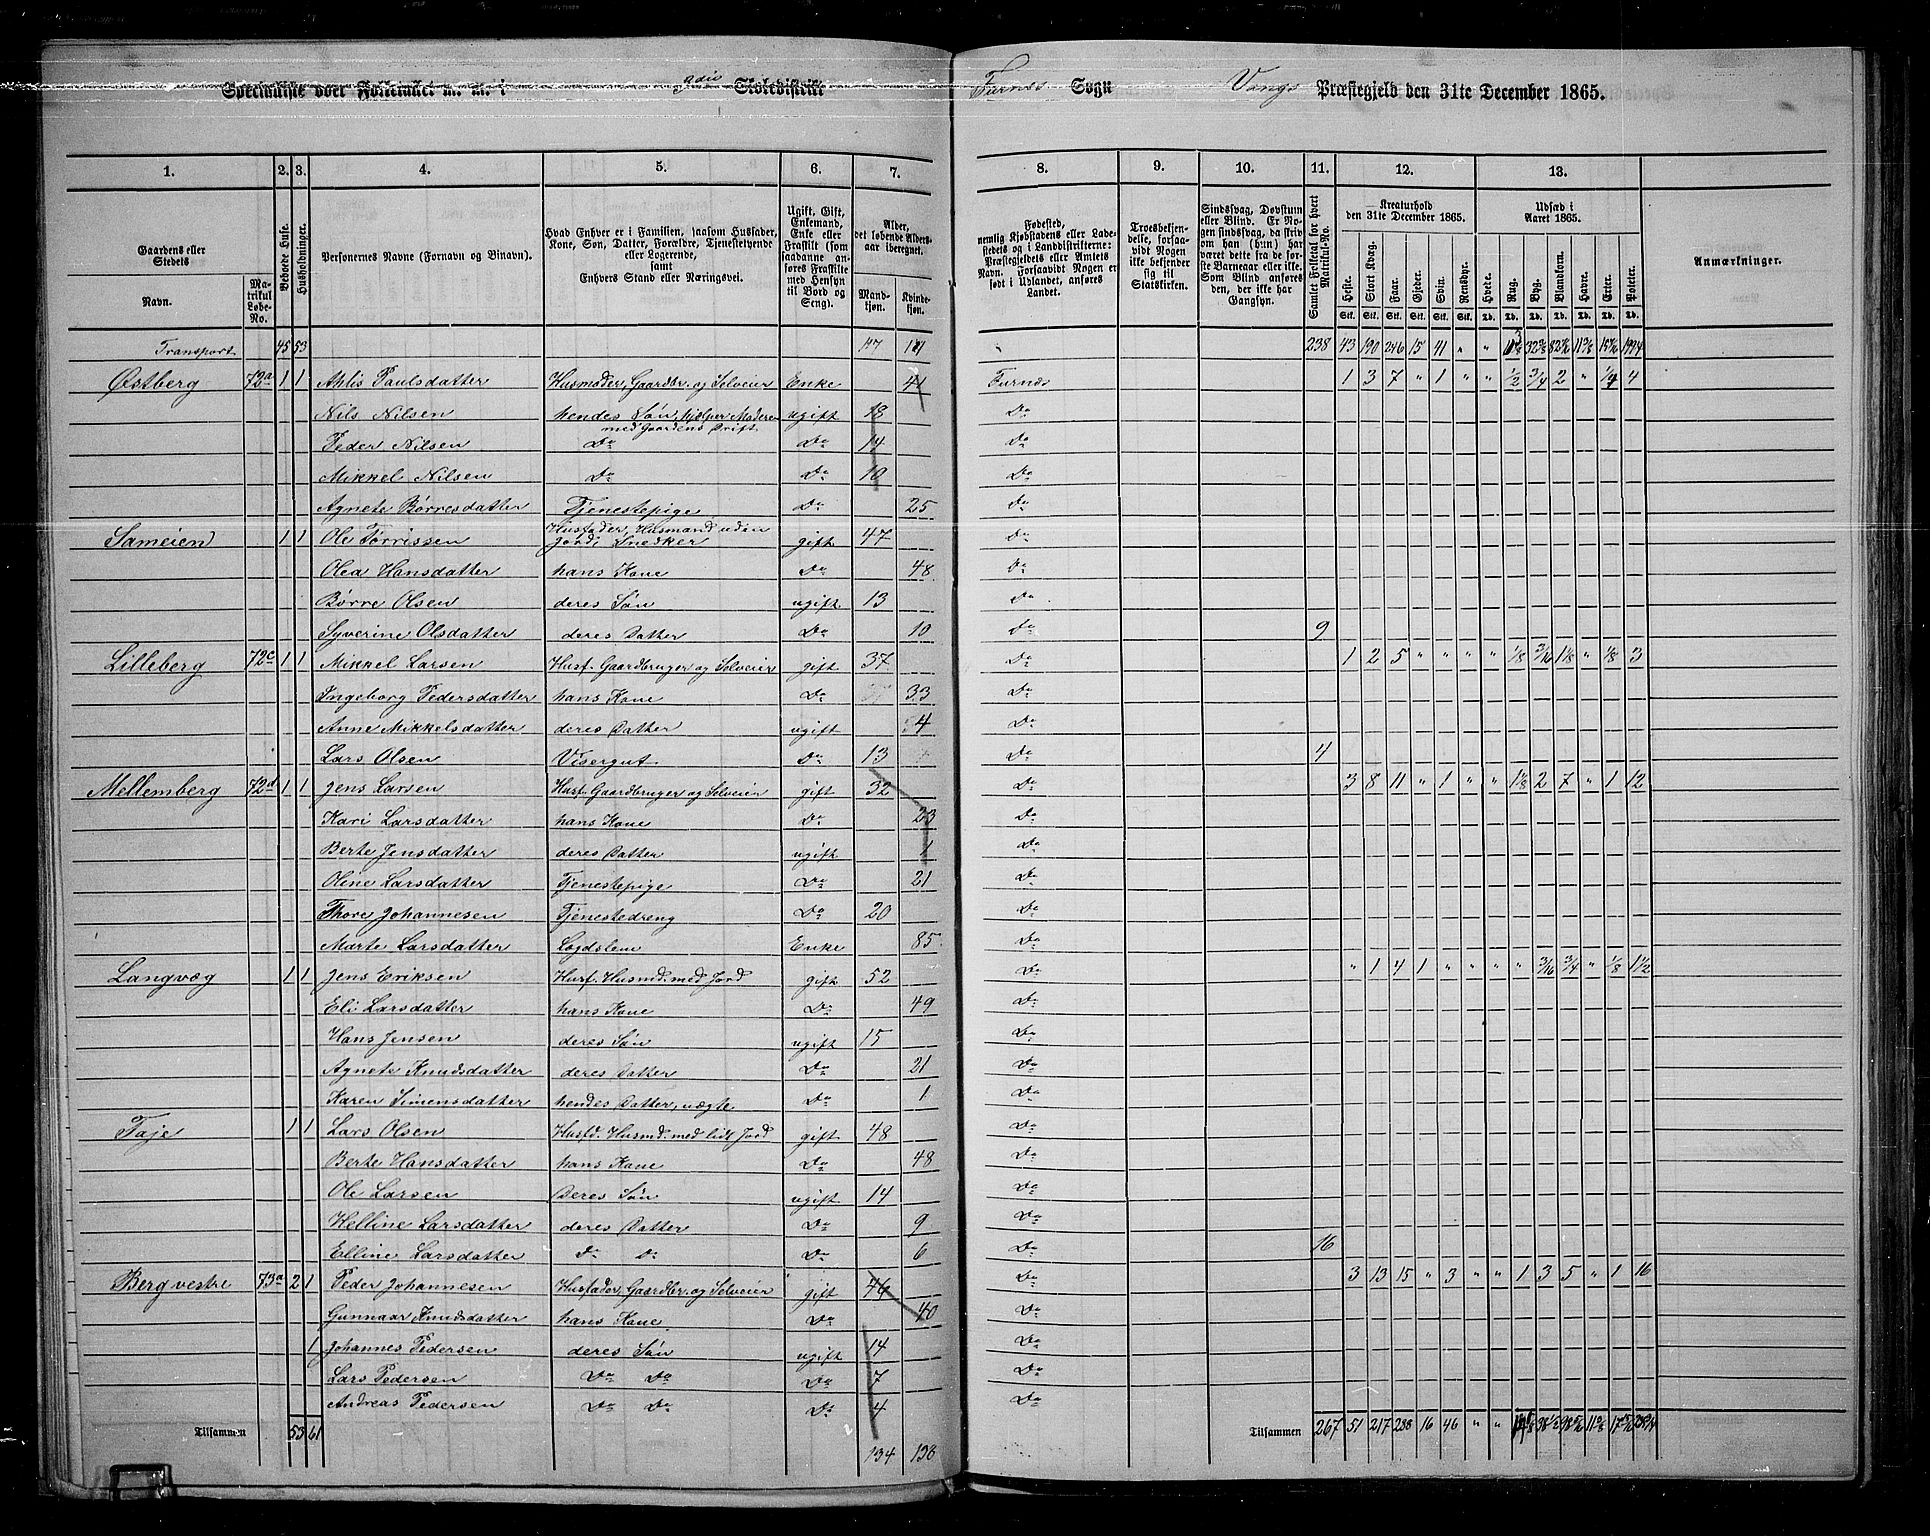 Specialliste over Folketallet m. m. i 3die Skoledistrikt Furnes Sogn Vangs Præstegjeld den 31te December 1865.
1. 2. 3. 4. 5. 6. 7. 8. 9. 10. 11. 12. 13.
Gaardens eller Stedets
Navn.
Matrikul Løbe-No.
Beboede Huse.
Husholdninger.
Personernes Navne (Fornavn og Binavn).
Hvad Enhver er i Familien, saasom Husfader, Kone, Søn, Datter, Forældre, Tjenestetyende eller Logerende, samt Enhvers Stand eller Næringsvei.
Ugift, Gift, Enkemand, Enke eller Fraskilt (som saadanne anføres Fraskilte med Hensyn til Bord og Seng).
Alder, det løbende Aldersaar iberegnet.
Mandkjøn.
Kvindekjøn.
Fødested, nemlig Kjøbstadens eller Ladestedets og i Landdistrikterne: Præstegjeldets eller Amtets Navn. Forsaavidt Nogen er født i Udlandet, anføres Landet.
Troesbekjendelse, forsaavidt Nogen ikke bekjender sig til Statskirken.
Sindssvag, Døvstum eller Blind. Er Nogen sindssvag, da skrives om han (hun) har været dette før første Barneaar eller ikke. Som Blind anføres den, der ikke har Gangsyn.
Samlet Folketal for hvert Matrikul-No.
Kreaturhold den 31te December 1865.
Heste. Stort Kvæg. Faar. Gjeder. Svin. Rensdyr.
Stk. Stk. Stk. Stk. Stk. Stk.
Udsæd i Aaret 1865.
Hvede. Rug. Byg. Blandkorn. Havre. Erter. Poteter.
Td. Td. Td. Td. Td. Td. Td.
Anmærkninger.
Transport 45 53 238 43 190 246 15 41 " "
Østberg 72a 1 1 Ahlis Paulsdatter Husmoder, Gaardbr. og Selveier Enke 41 Furnes 1 3 7 " 1 " " 1/2 3/4 2 " 1/4 4
Nils Nilsen hendes Søn, hjelper Moderen med Gaardens Drift ugift 18 Do
Peder Nilsen Do Do 14 Do
Mikkel Nilsen Do Do 10 Do
Agnete Børresdatter Tjenestepige Do 25 Do
Sameien 1 1 Ole Torrissen Husfader, Husmand uden Jord; Snedker gift 47 Do
Olea Hansdatter hans Kone Do 48 Do
Børre Olsen deres Søn ugift 13 Do
Syverine Olsdatter deres Datter Do 10 Do 9
Lilleberg 72c 1 1 Mikkel Larsen Husf. Gaardbruger og Selveier gift 37 Do 1 2 5 " " " " 1/8 3/16 1 1/8 " 1/8 3
Ingeborg Pedersdatter hans Kone Do 33 Do
Anne Mikkelsdatter deres Datter ugift 4 Do
Lars Olsen Visergut Do 13 Do 4
Mellemberg 72d 1 1 Jens Larsen Husf. Gaardbruger og Selveier gift 32 Do 3 8 11 " 1 " " 1 1/8 2 7 " 1 12
Kari Larsdatter hans Kone Do 23 Do
Berte Jensdatter deres Datter ugift 1 Do
Oline Larsdatter Tjenestepige Do 21 Do
Thore Johannesen Tjenestedreng Do 20 Do
Marte Larsdatter Lægdslem Enke 85 Do
Langvæg 1 1 Jens Eriksen Husf. Husmd. med Jord gift 52 Do " 1 4 1 " " " " 3/16 3/4 " 1/8 1 1/2
Eli Larsdatter hans Kone Do 49 Do
Hans Jensen deres Søn ugift 15 Do
Agnete Knudsdatter deres Datter Do 21 Do
Karen Simensdatter hendes Datter, uægte Do 1 Do
Faje 1 1 Lars Olsen Husfd. Husmd. med lidt Jord gift 48 Do
Berte Hansdatter hans Kone Do 48 Do
Ole Larsen Deres Søn ugift 14 Do
Helline Larsdatter deres Datter Do 9 Do
Elline Larsdatter Do Do Do 6 Do 16
Berg vestre 73a 2 1 Peder Johannesen Husfader, Gaardbr. og Selveier gift 44 Do 3 13 15 " 3 " " 1 3 5 " 1 16
Gunnaar Knudsdatter hans Kone Do 40 Do
1 Johannes Pedersen deres Søn ugift 14 Do
Lars Pedersen Do Do Do 7 Do
Andreas Pedersen Do Do Do 4 Do
Tilsammen 53 61 134 138 Tilsammen 267 51 217 288 16 46 " "